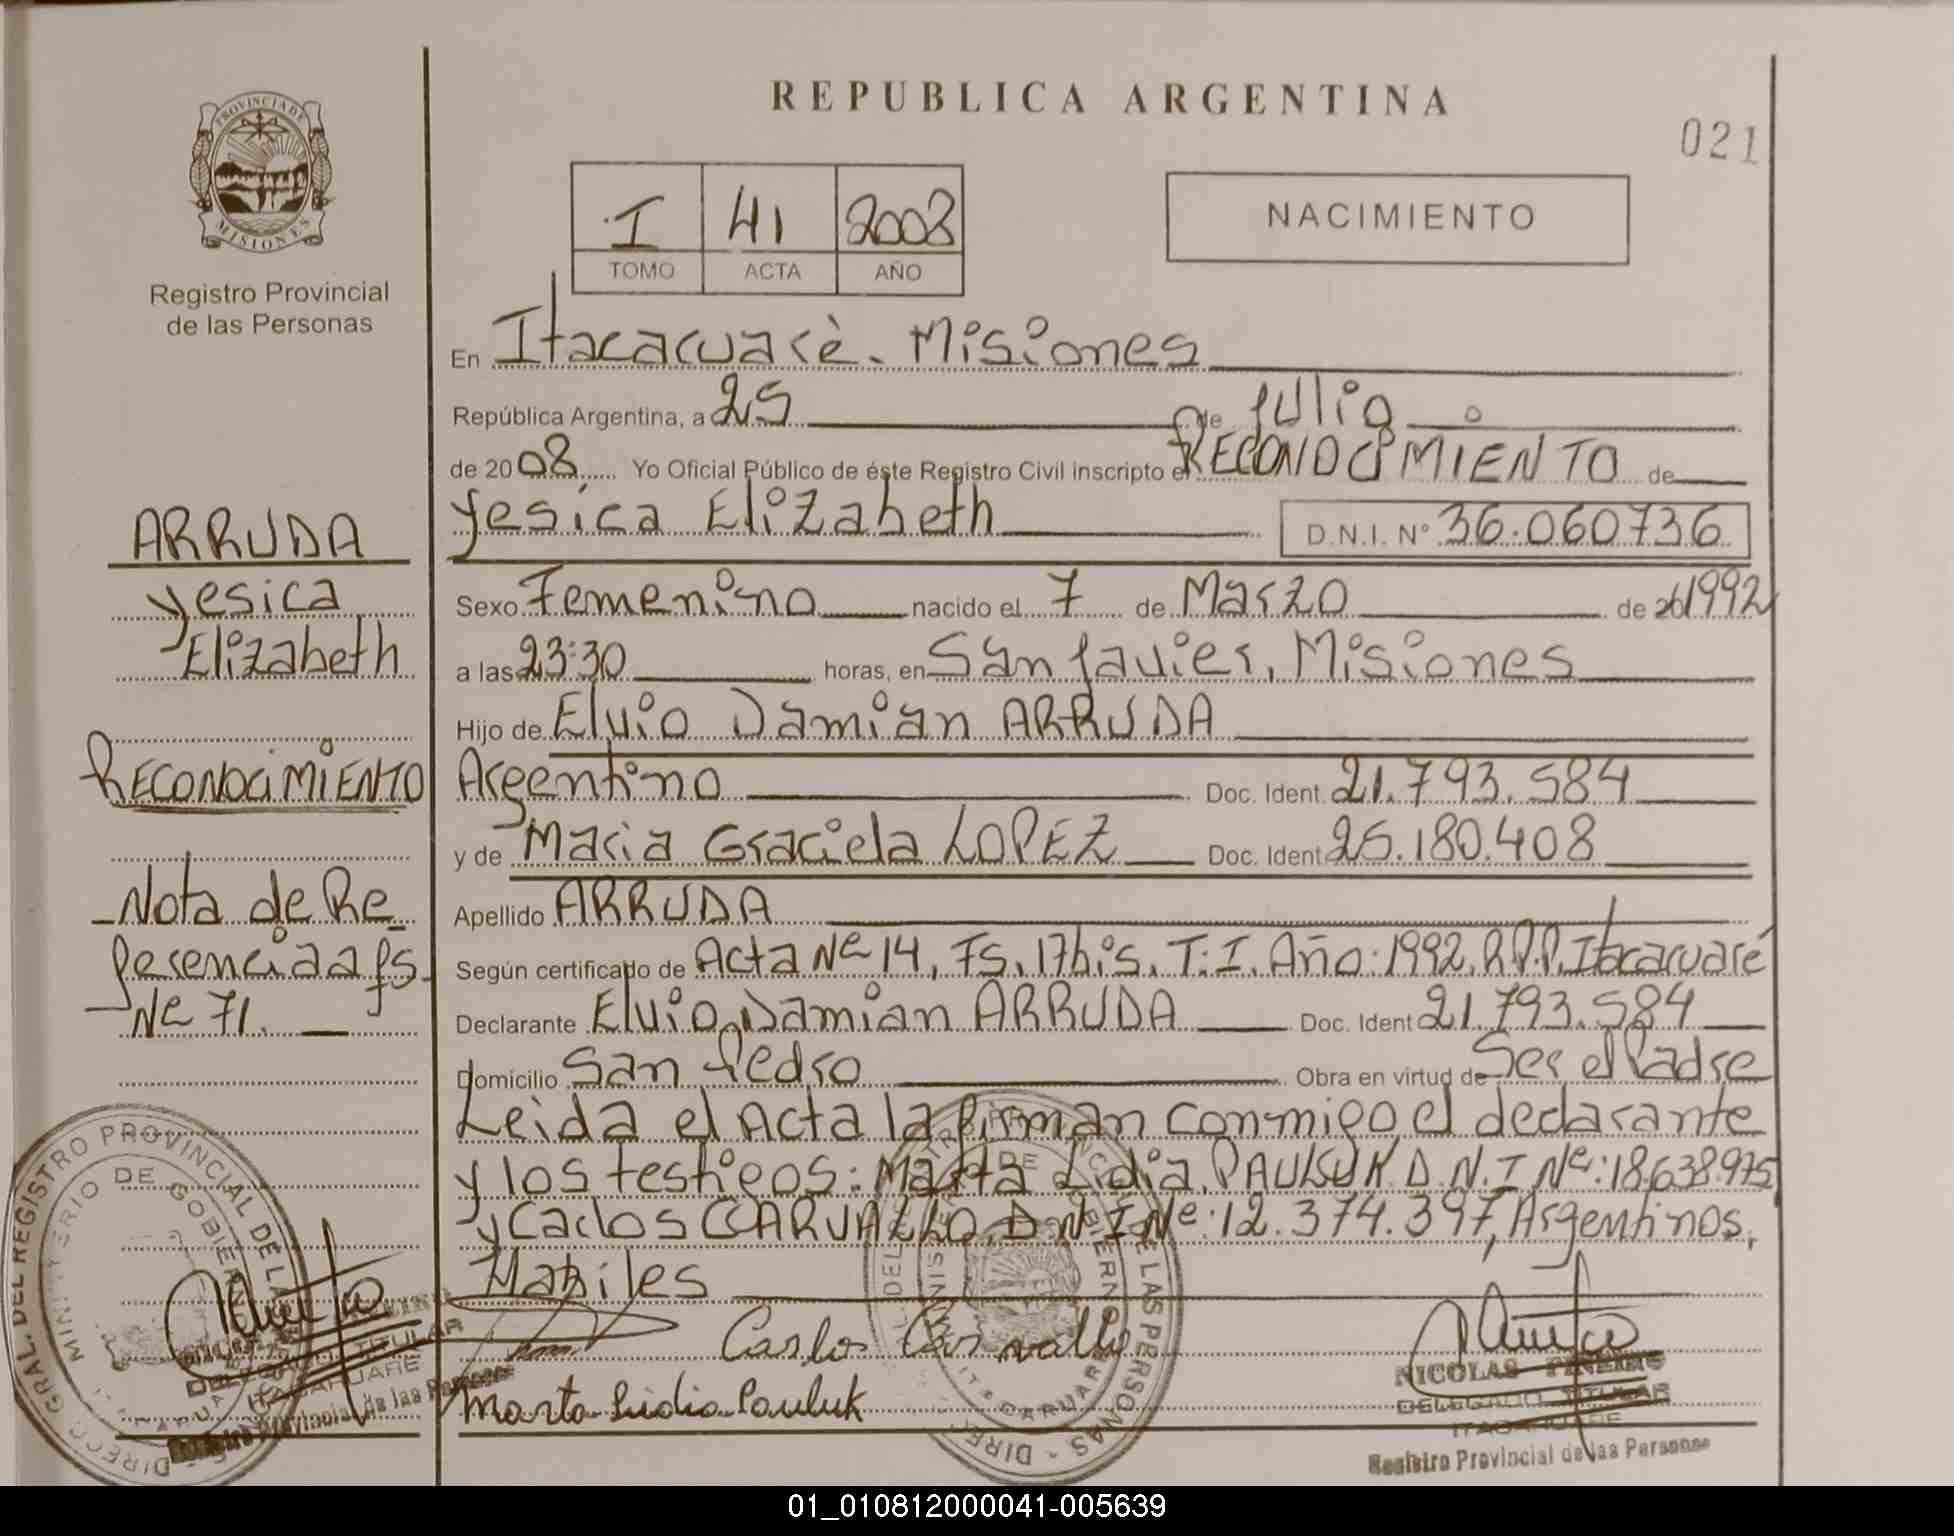 REPUBLICA ARGENTINA
021
PROVINCIA DE
MISIONES
Registro Provincial
de las Personas
I 41 2008
TOMO ACTA AÑO
NACIMIENTO
En Itacacuaré. Misiones
República Argentina, a 25 de Julio
de 2008 Yo Oficial Público de éste Registro Civil inscripto el RECONOCIMIENTO de
Yesica Elizabeth D.N.I. Nº 36.060736
Sexo Femenino nacido el 7 de Marzo de 1992
a las 23:30 horas, en San Javier, Misiones
Hijo de Elvio Damian ARRUDA
Argentino Doc. Ident. 21.793.584
y de Maria Graciela LOPEZ Doc. Ident 25.180.408
Apellido ARRUDA
Según certificado de Acta Nº 14, Fs. 17 bis. T: I. Año: 1992. R.P.P. Itacaruaré
Declarante Elvio Damian ARRUDA Doc. Ident 21.793.584
Domicilio San Pedro Obra en virtud de Ser el Padre
Leida el Acta la firman conmigo el declarante
y los testigos: Marta Lidia PAULUK D.N.I Nº: 18.638.975
y Carlos CARVALLO. D.N.I Nº: 12.374.397, Argentinos,
Habiles
Carlos Carvallo
Marta Lidia Pauluk
NICOLAS PINEIRO
DELEGADO TITULAR
ITACARUARE
Registro Provincial de las Personas
ARRUDA
Yesica
Elizabeth
RECONOCIMIENTO
Nota de Re
ferencia a fs.
Nº 71.
DIRECC. GRAL. DEL REGISTRO PROVINCIAL DE LAS
MINISTERIO DE GOBIERN
TITULAR
ITACARUARE
Registro Provincial de las Personas
01_010812000041-005639